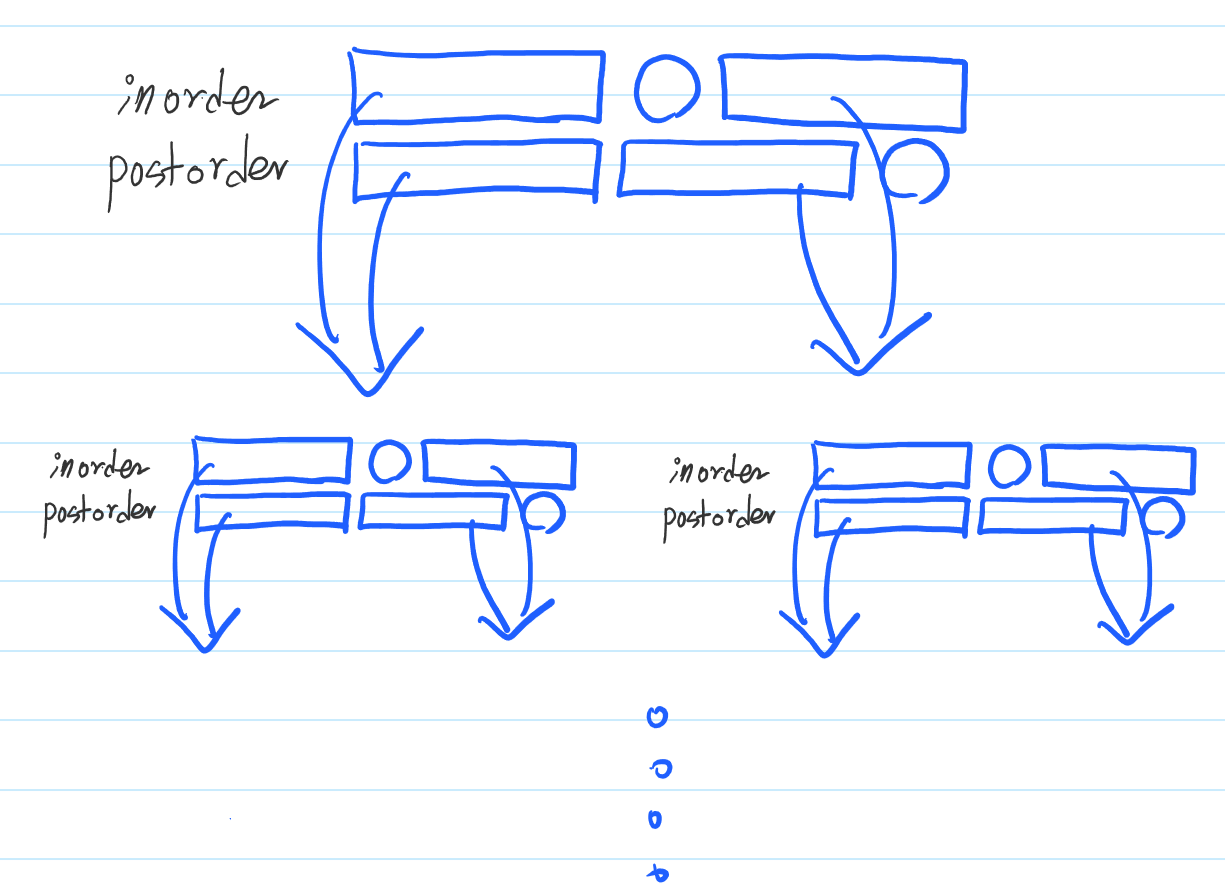 inorder
postorder
inorder
postorder
inorder
postorder